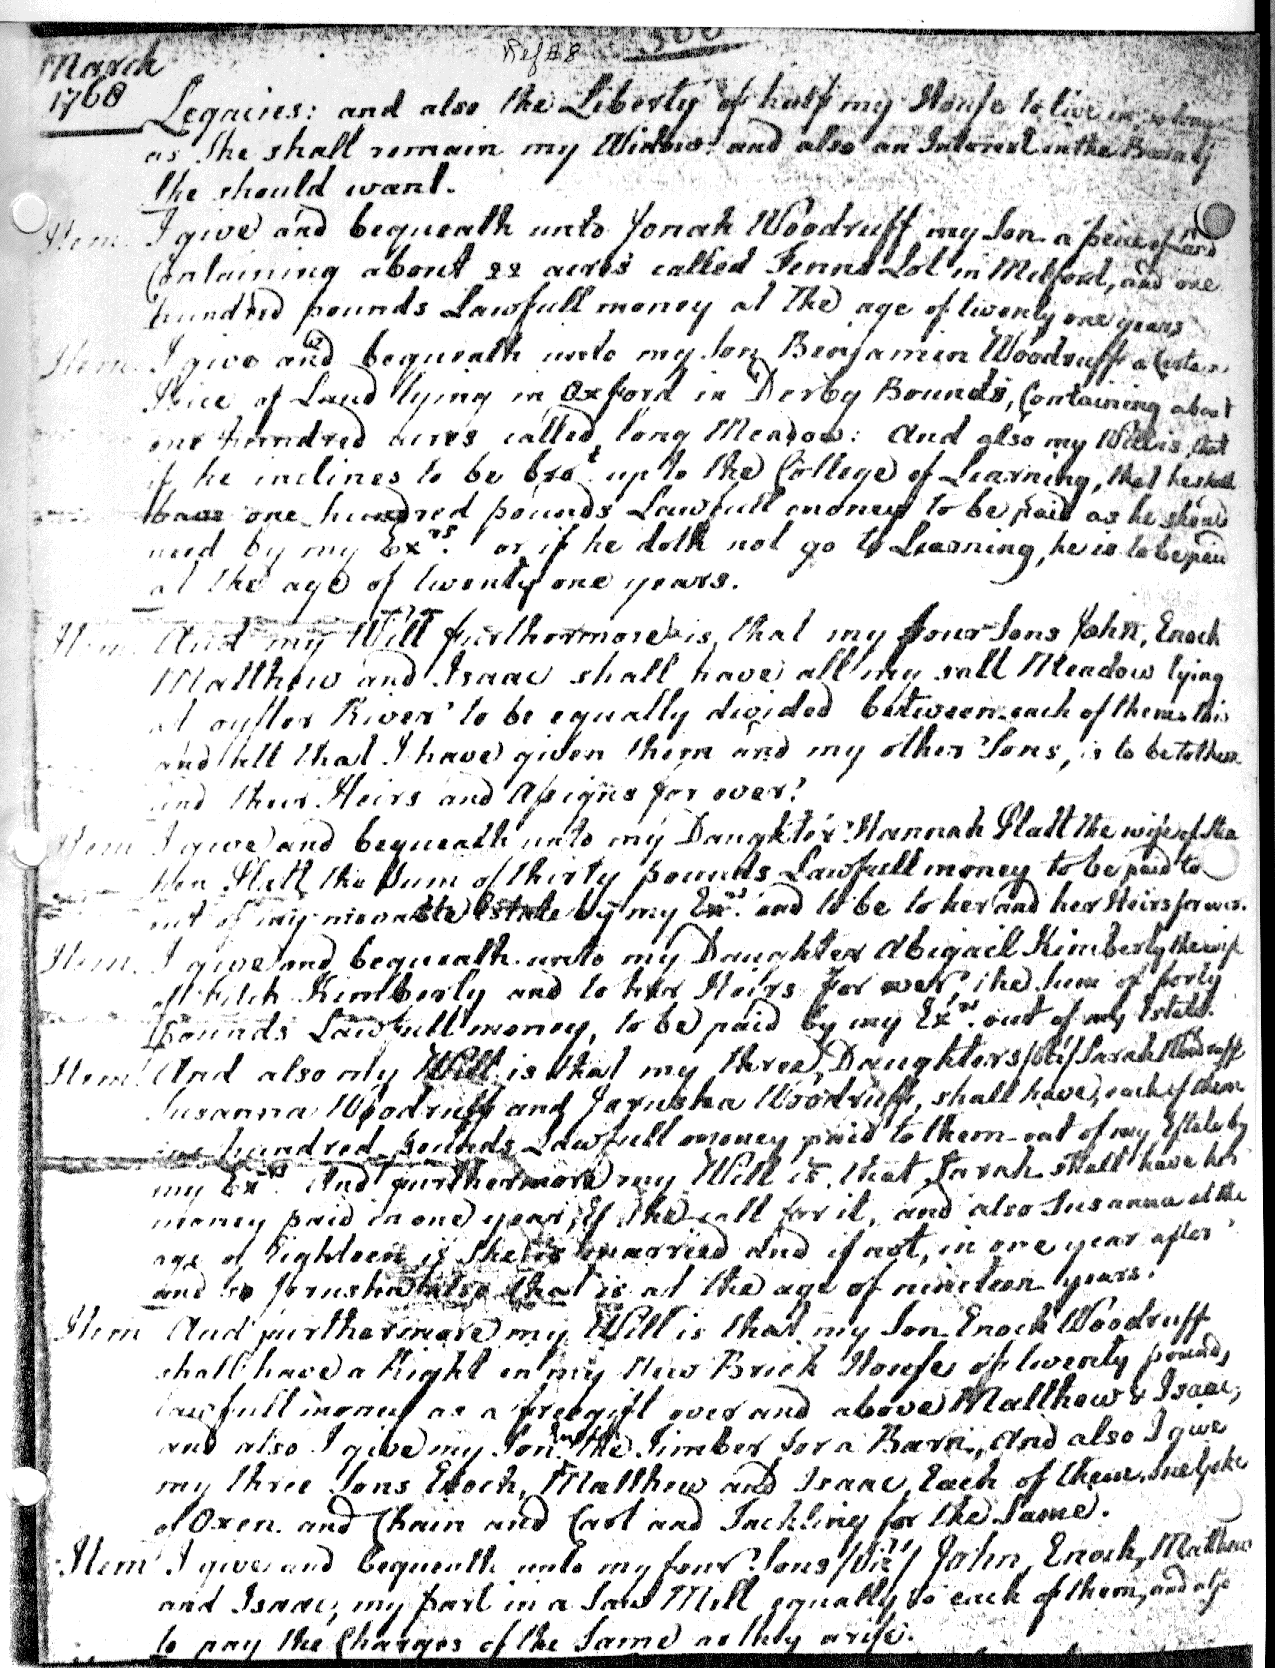 Ref #8 300
March
1768
Legacies: and also the Liberty of half my House to live in, so long
as she shall remain my Widow: and also an Interest in the Barn if
she should want.
Item. I give and bequeath unto Jonah Woodruff my Son a peice of Land
Containing about 22 acres called Fenns Lot in Milford, and one
hundred pounds Lawfull money at the age of twenty one years
Item. I give and bequeath unto my Son Benjamin Woodruff a Certain
Peice of Land lying in Oxford in Derby Bounds, Containing about
one hundred acres called, long Meadow: And also my Will is, that
if he inclines to be bro.t up to the College of Learning, that he shall
have one hundred pounds Lawfull money to be paid as he should
need by my Ex.rs or if he doth not go to Learning, he is to be paid
at the age of twenty one years.
Item. And my Will furthermore is, that my four Sons John, Enoch
Matthew and Isaac shall have all my salt Meadow lying
at oyster River to be equally divided between each of them this
and all that I have given them and my other Sons, is to be to them
and their Heirs and Assigns for ever.
Item I give and bequeath unto my Daughter Hannah Platt the wife of
Platt the Sum of thirty pounds Lawfull money to be paid to
out of my moveable Estate by my Ex.rs and to be to her and her Heirs for ever.
Item. I give and bequeath unto my Daughter Abigail Kimberly the wife
of Fitch Kimberly and to her Heirs For ever, the Sum of forty
pounds Lawfull money, to be paid by my Ex.rs out of my Estate.
Item. And also my Will is that my three Daughters /viz/ Sarah Woodruff
Susanna Woodruff and Jerusha Woodruff, shall have, each of them
one hundred pounds Lawfull money paid to them out of my Estate by
my Ex.rs And furthermore my Will is, that Sarah shall have her
money paid in one year, If she call for it, and also Susanna at the
age of Eighteen if She is married and if not, in one year after
and so Jerusha also that is at the age of nineteen years.
Item And furthermore my Will is that my Son Enoch Woodruff
shall have a Right in my New Brick House of twenty pounds
lawfull money as a free gift over and above Matthew & Isaac,
and also I give my Son Enoch the Timber for a Barn, And also I give
my three Sons Enoch, Matthew and Isaac, Each of them one Yoke
of Oxen and Chain and Cart and Tackling for the Same.
Item I give and bequeath unto my four Sons /Viz/ John, Enoch, Matthew
and Isaac, my part in a Saw Mill equally to each of them, and also
to pay the Charges of the Same as they arise.